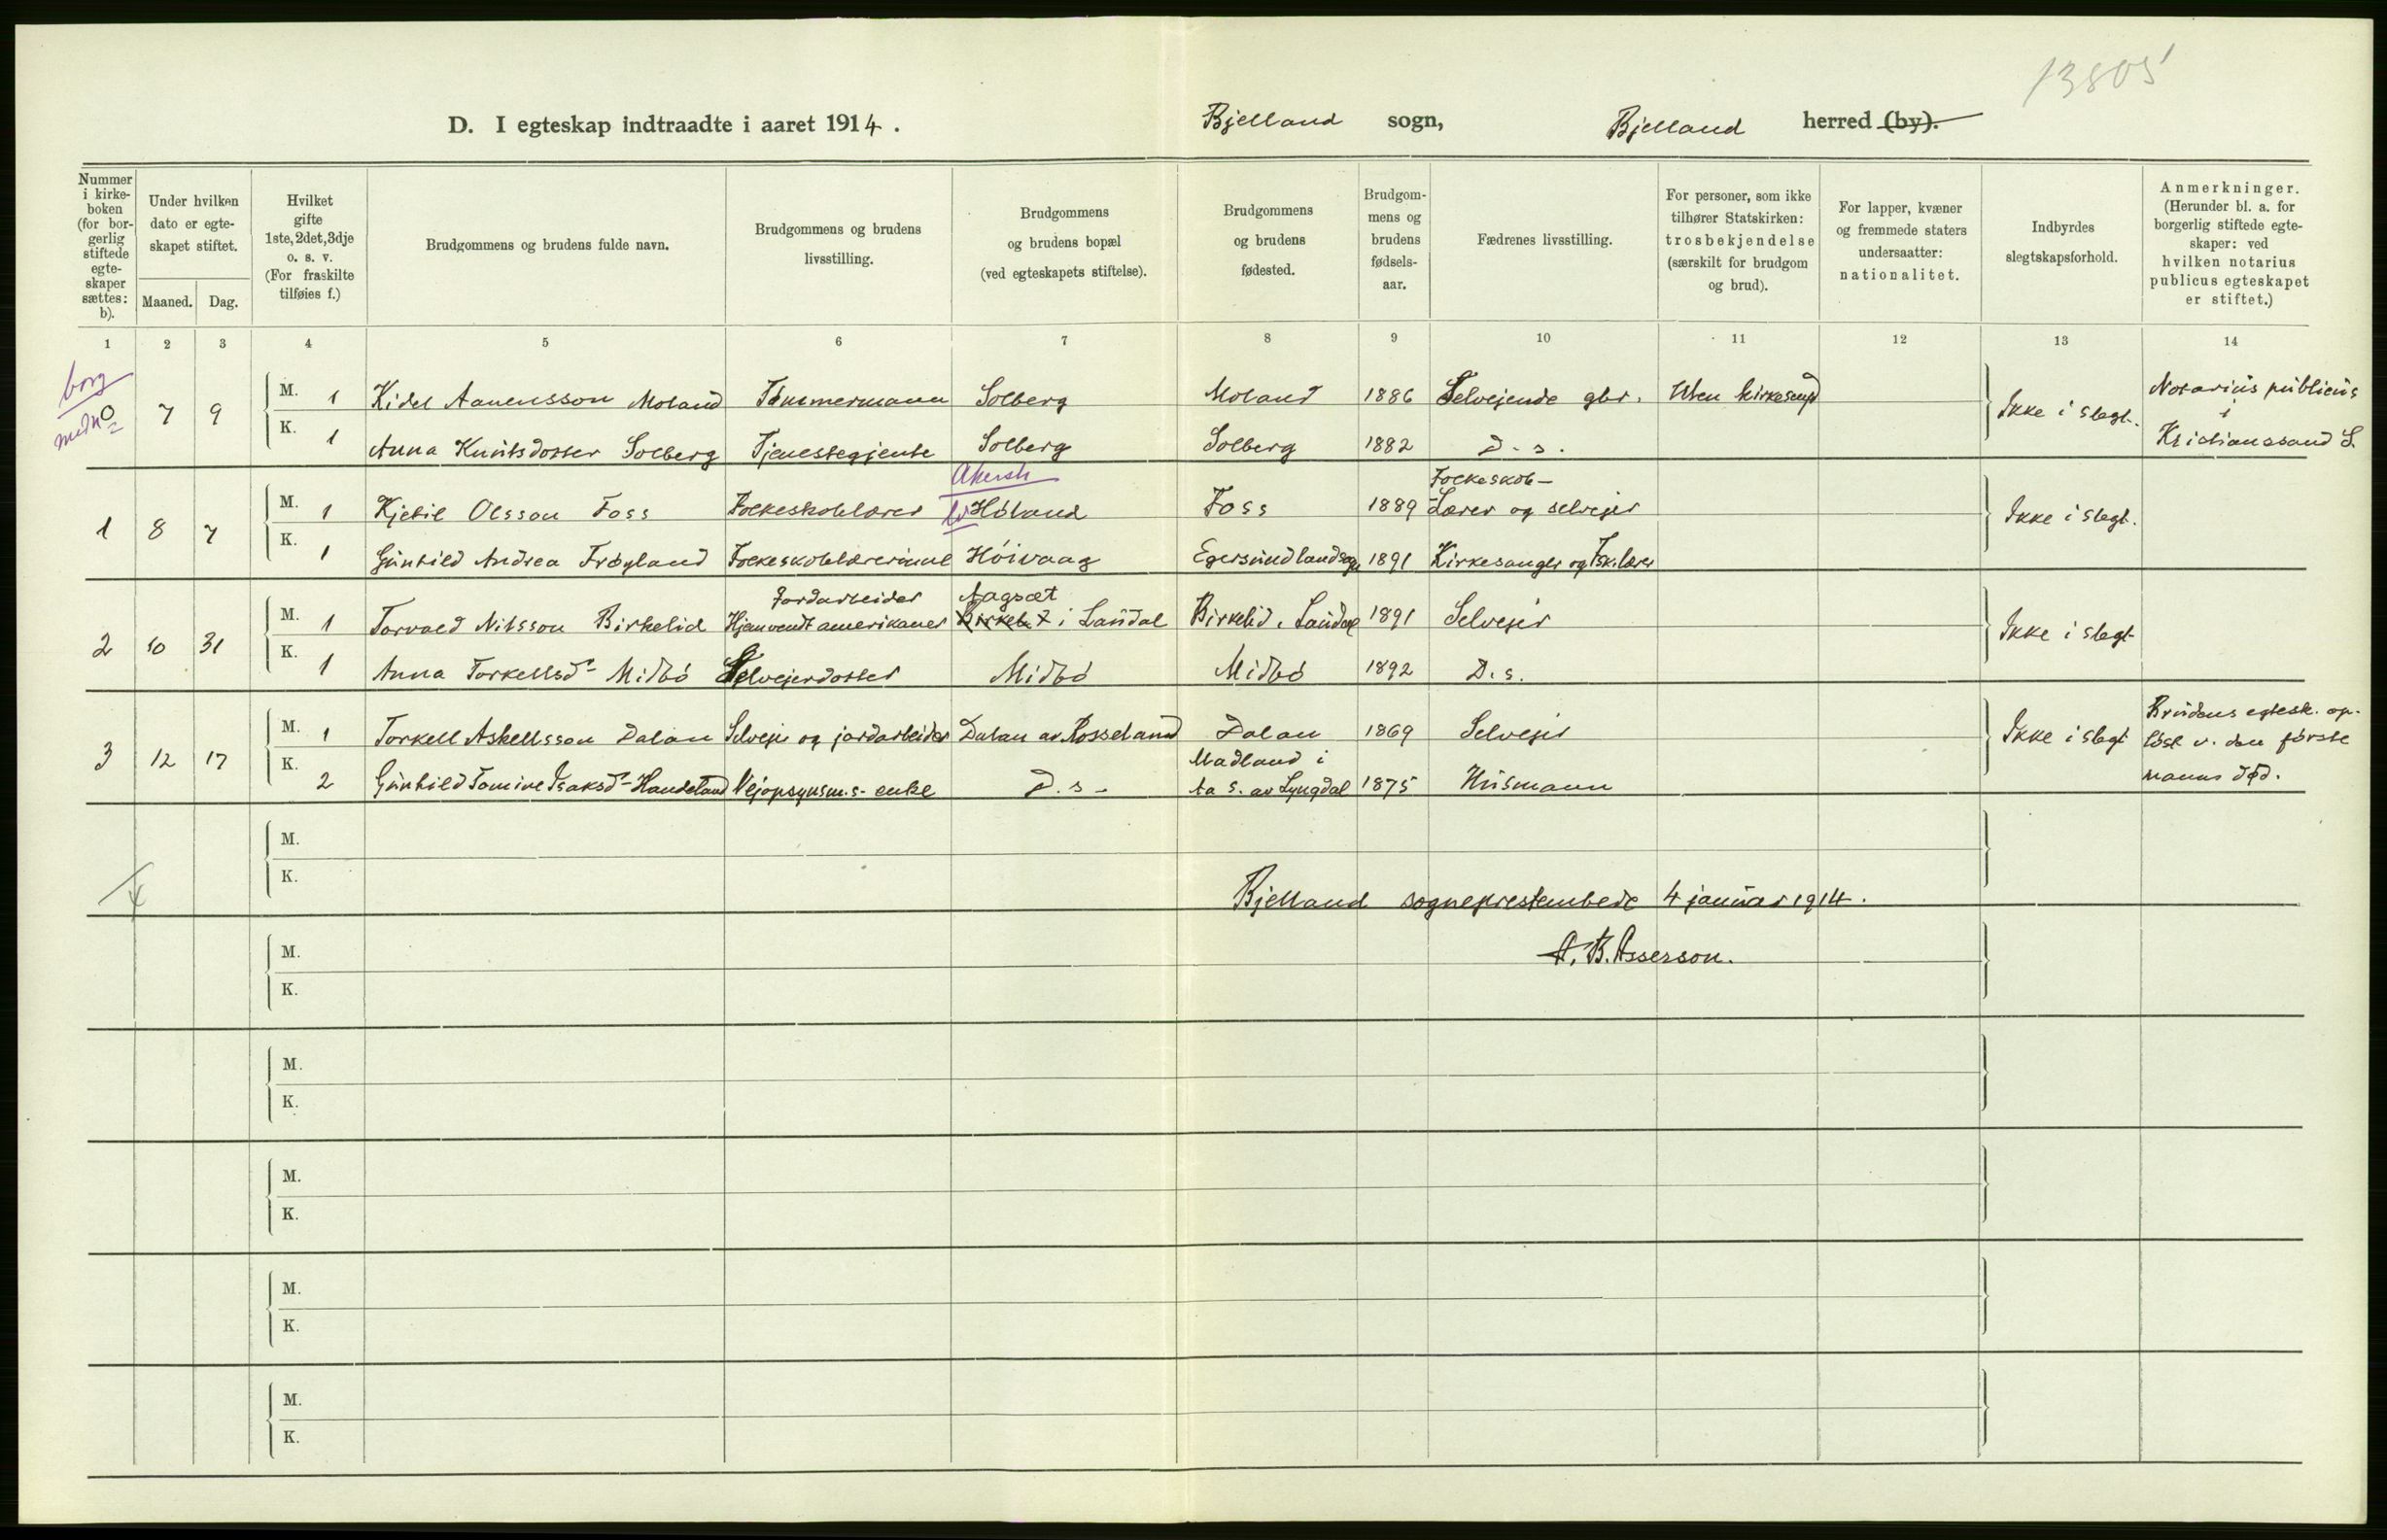 13805
D. I egteskap indtraadte i aaret 1914. Bjelland sogn, Bjelland herred (by).
Nummer i kirke-boken (for bor-gerlig stiftede egte-skaper sættes: b).
Under hvilken dato er egte-skapet stiftet.
Maaned. Dag.
Hvilket gifte 1ste, 2det, 3dje o. s. v. (For fraskilte tilføies f.)
Brudgommens og brudens fulde navn.
Brudgommens og brudens livsstilling.
Brudgommens og brudens bopæl (ved egteskapets stiftelse).
Brudgommens og brudens fødested.
Brudgom-mens og brudens fødsels-aar.
Fædrenes livsstilling.
For personer, som ikke tilhører Statskirken: trosbekjendelse (særskilt for brudgom og brud).
For lapper, kvæner og fremmede staters undersaatter: nationalitet.
Indbyrdes slegtskapsforhold.
Anmerkninger. (Herunder bl. a. for borgerlig stiftede egte-skaper: ved hvilken notarius publicus egteskapet er stiftet.)
1 2 3 4 5 6 7 8 9 10 11 12 13 14
borg
0 7 9 M. 1 Kidel Aanensson Moland Tømmermann Solberg Moland 1886 Selvejende gbr. Uten kirkesamf Ikke i slegt. Notarius publicus i Kristianssand S.
K. 1 Anna Knutsdotter Solberg Tjenestegjente Solberg Solberg 1882 D. s.
Akersh
1 8 7 M. 1 Kjetil Olsson Foss Folkeskolelærer Høland Foss 1889 Folkeskole-Lærer og selvejer Ikke i slegt.
K. 1 Gunhild Andrea Frøyland Folkeskolelærerinne Höivaag Egersund landsogn 1891 Kirkesanger og Fsk.lærer
Jordarbeider Aagsæt
2 10 31 M. 1 Torvald Nilsson Birkelid Hjemvendt amerikaner Birkelid i Laudal Birkelid, Laudal 1891 Selvejer Ikke i slegt
K. 1 Anna Torkellsd- Midbö Selvejerdotter Midbö Midbö 1892 D. s.
3 12 17 M. 1 Torkell Askellsson Dalan Selvejer og jordarbeider Dalan av Rosseland Dalan 1869 Selvejer Ikke i slegt Brudens egtesk. op-löst v. den förste manns død.
K. 2 Gunhild Tomine Isaksd- Handeland Vejopsynsm.s- enke D. s- Madland i Aa s. av Lyngdal 1875 Husmann
M.
K.
Bjelland sogneprestembede 4 januar 1914.
M.
A. B. Asserson.
K.
M.
K.
M.
K.
M.
K.
M.
K.